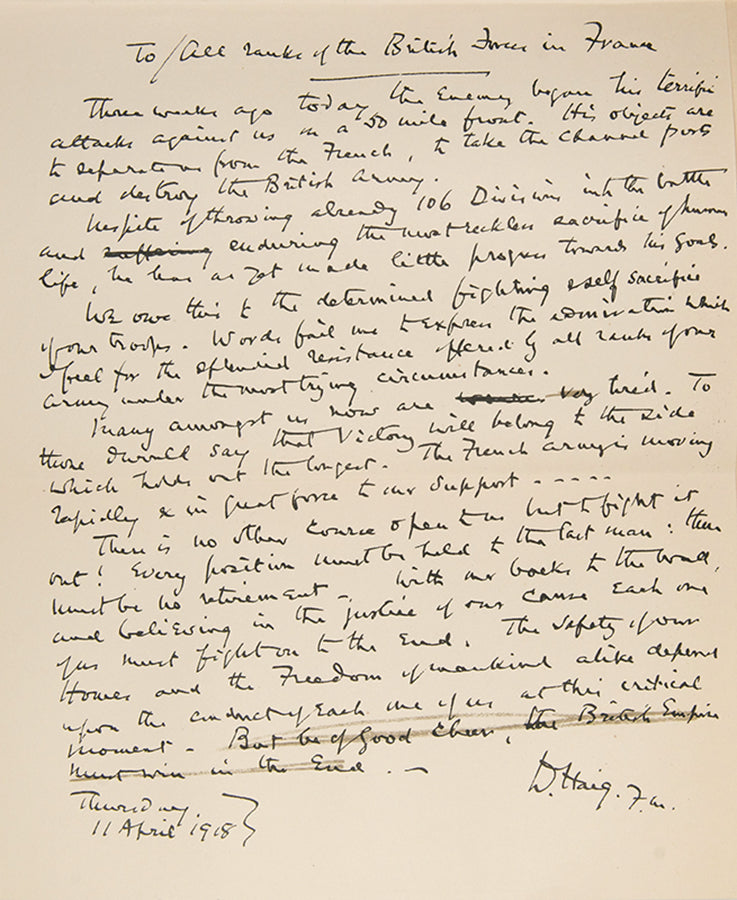 To/All ranks of the British Forces in France
Three weeks ago today the Enemy began his terrific
attacks against us on a 50 mile front. His objects are
to separate us from the French, to take the Channel ports
and destroy the British Army.
Inspite of throwing already 106 Divisions into the battle
and suffering enduring the most reckless sacrifice of human
life, he has as yet made little progress towards his Goals.
We owe this to the determined fighting & self sacrifice
of our troops. Words fail me to Express the admiration which
I feel for the splendid resistance offered by all ranks of our
Army under the most trying circumstances.
Many amongst us now are very tired. To
those I would say that Victory will belong to the side
which holds out the longest. The French Army is moving
rapidly & in great force to our Support - - - - -
There is no other Course open to us but to fight it
out! Every position must be held to the last man: there
must be no retirement - With our backs to the wall,
and believing in the justice of our Cause Each one
of us must fight on to the End. The Safety of our
Homes and the Freedom of mankind alike depend
upon the conduct of Each one of us at this critical
moment - But be of Good Cheer, the British Empire
must win in the End. -
D. Haig. F.M.
Thursday.
11 April 1918